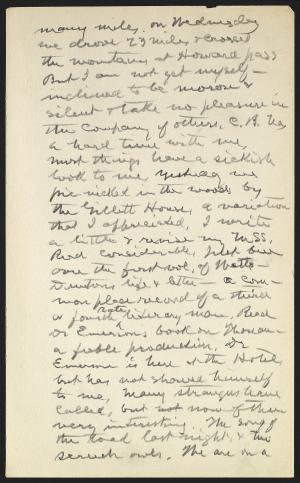 many miles. on Wednesday
we drove 23 miles & crossed
the mountains at Howard pass
But I am not yet myself —
inclined to be morose &
silent & take no pleasure in
the company of others. C. B. has
a hard time with me,
most things have a sickish
look to me. Yesterday we
pic-nicked in the woods by
the Gillett House, a variation
that I appreciated. I write
a little & revise my MSS.
Read considerable, just been
over the first vol. of Watts-
Dunton's life & letters — a com-
mon place record of a third
or fourth rate literary man. Read
Dr Emerson's book on Thoreau —
a feeble production. Dr
Emerson is here at the Hotel
but has not showed himself
to me, many strangers have
called, but not now of them
very interesting. The song of
the toad last night, & two
screech owls. We are on a